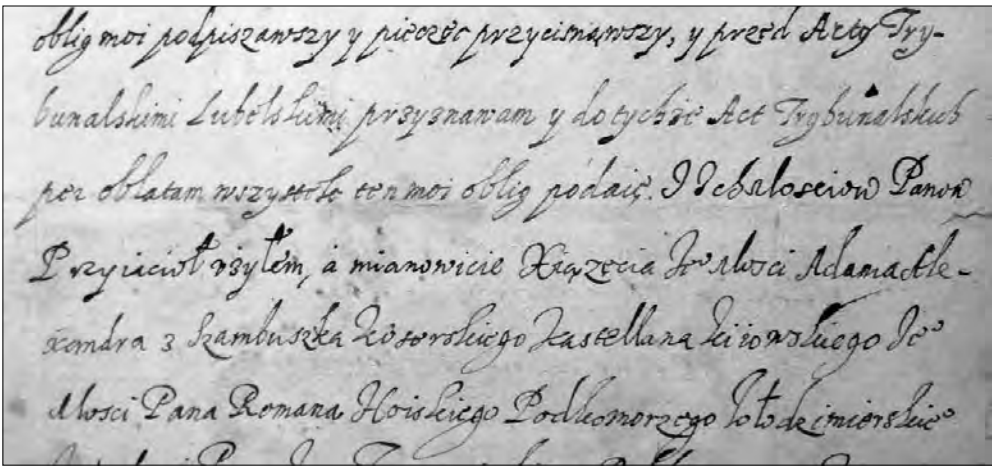 oblig moi podpiszawszy y pieczęc przycisnąwszy, y przed Acty Try-
bunalskimi Lubelskimi przyznawam y do tychże Act Trybunalskich
per oblatam wszystek ten moi oblig podaię. I Ichmłosciow Panow
Przyiacioł użyłem, a mianowicie Xiążęcia Jeo Młosci Adama Ale-
xandra z Kastellana kiiowskiego Jeo
Młosci Pana Romana Hoiskiego Podkomorzego